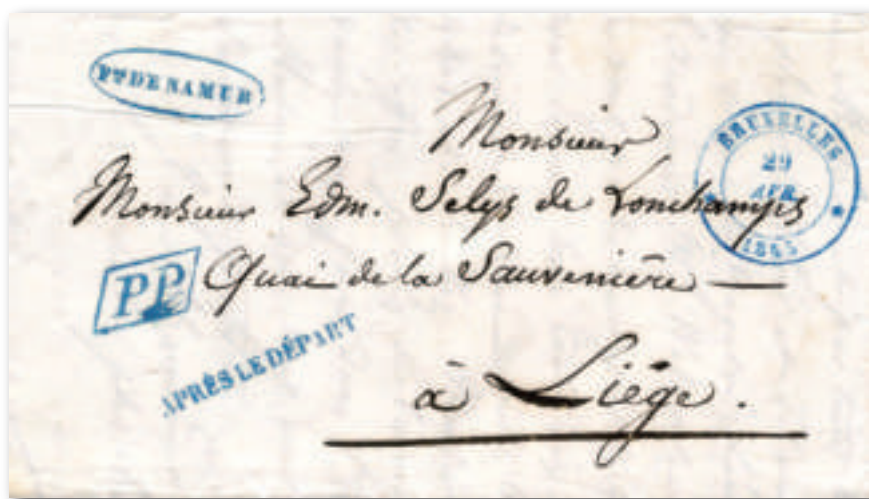 PTE DE NAMUR
BRUXELLES
29
AVR.
1845
Monsieur
Monsieur Edm. Selys de Lonchamps
PP
Quai de la Sauvenière —
APRÈS LE DÉPART
à Liége.